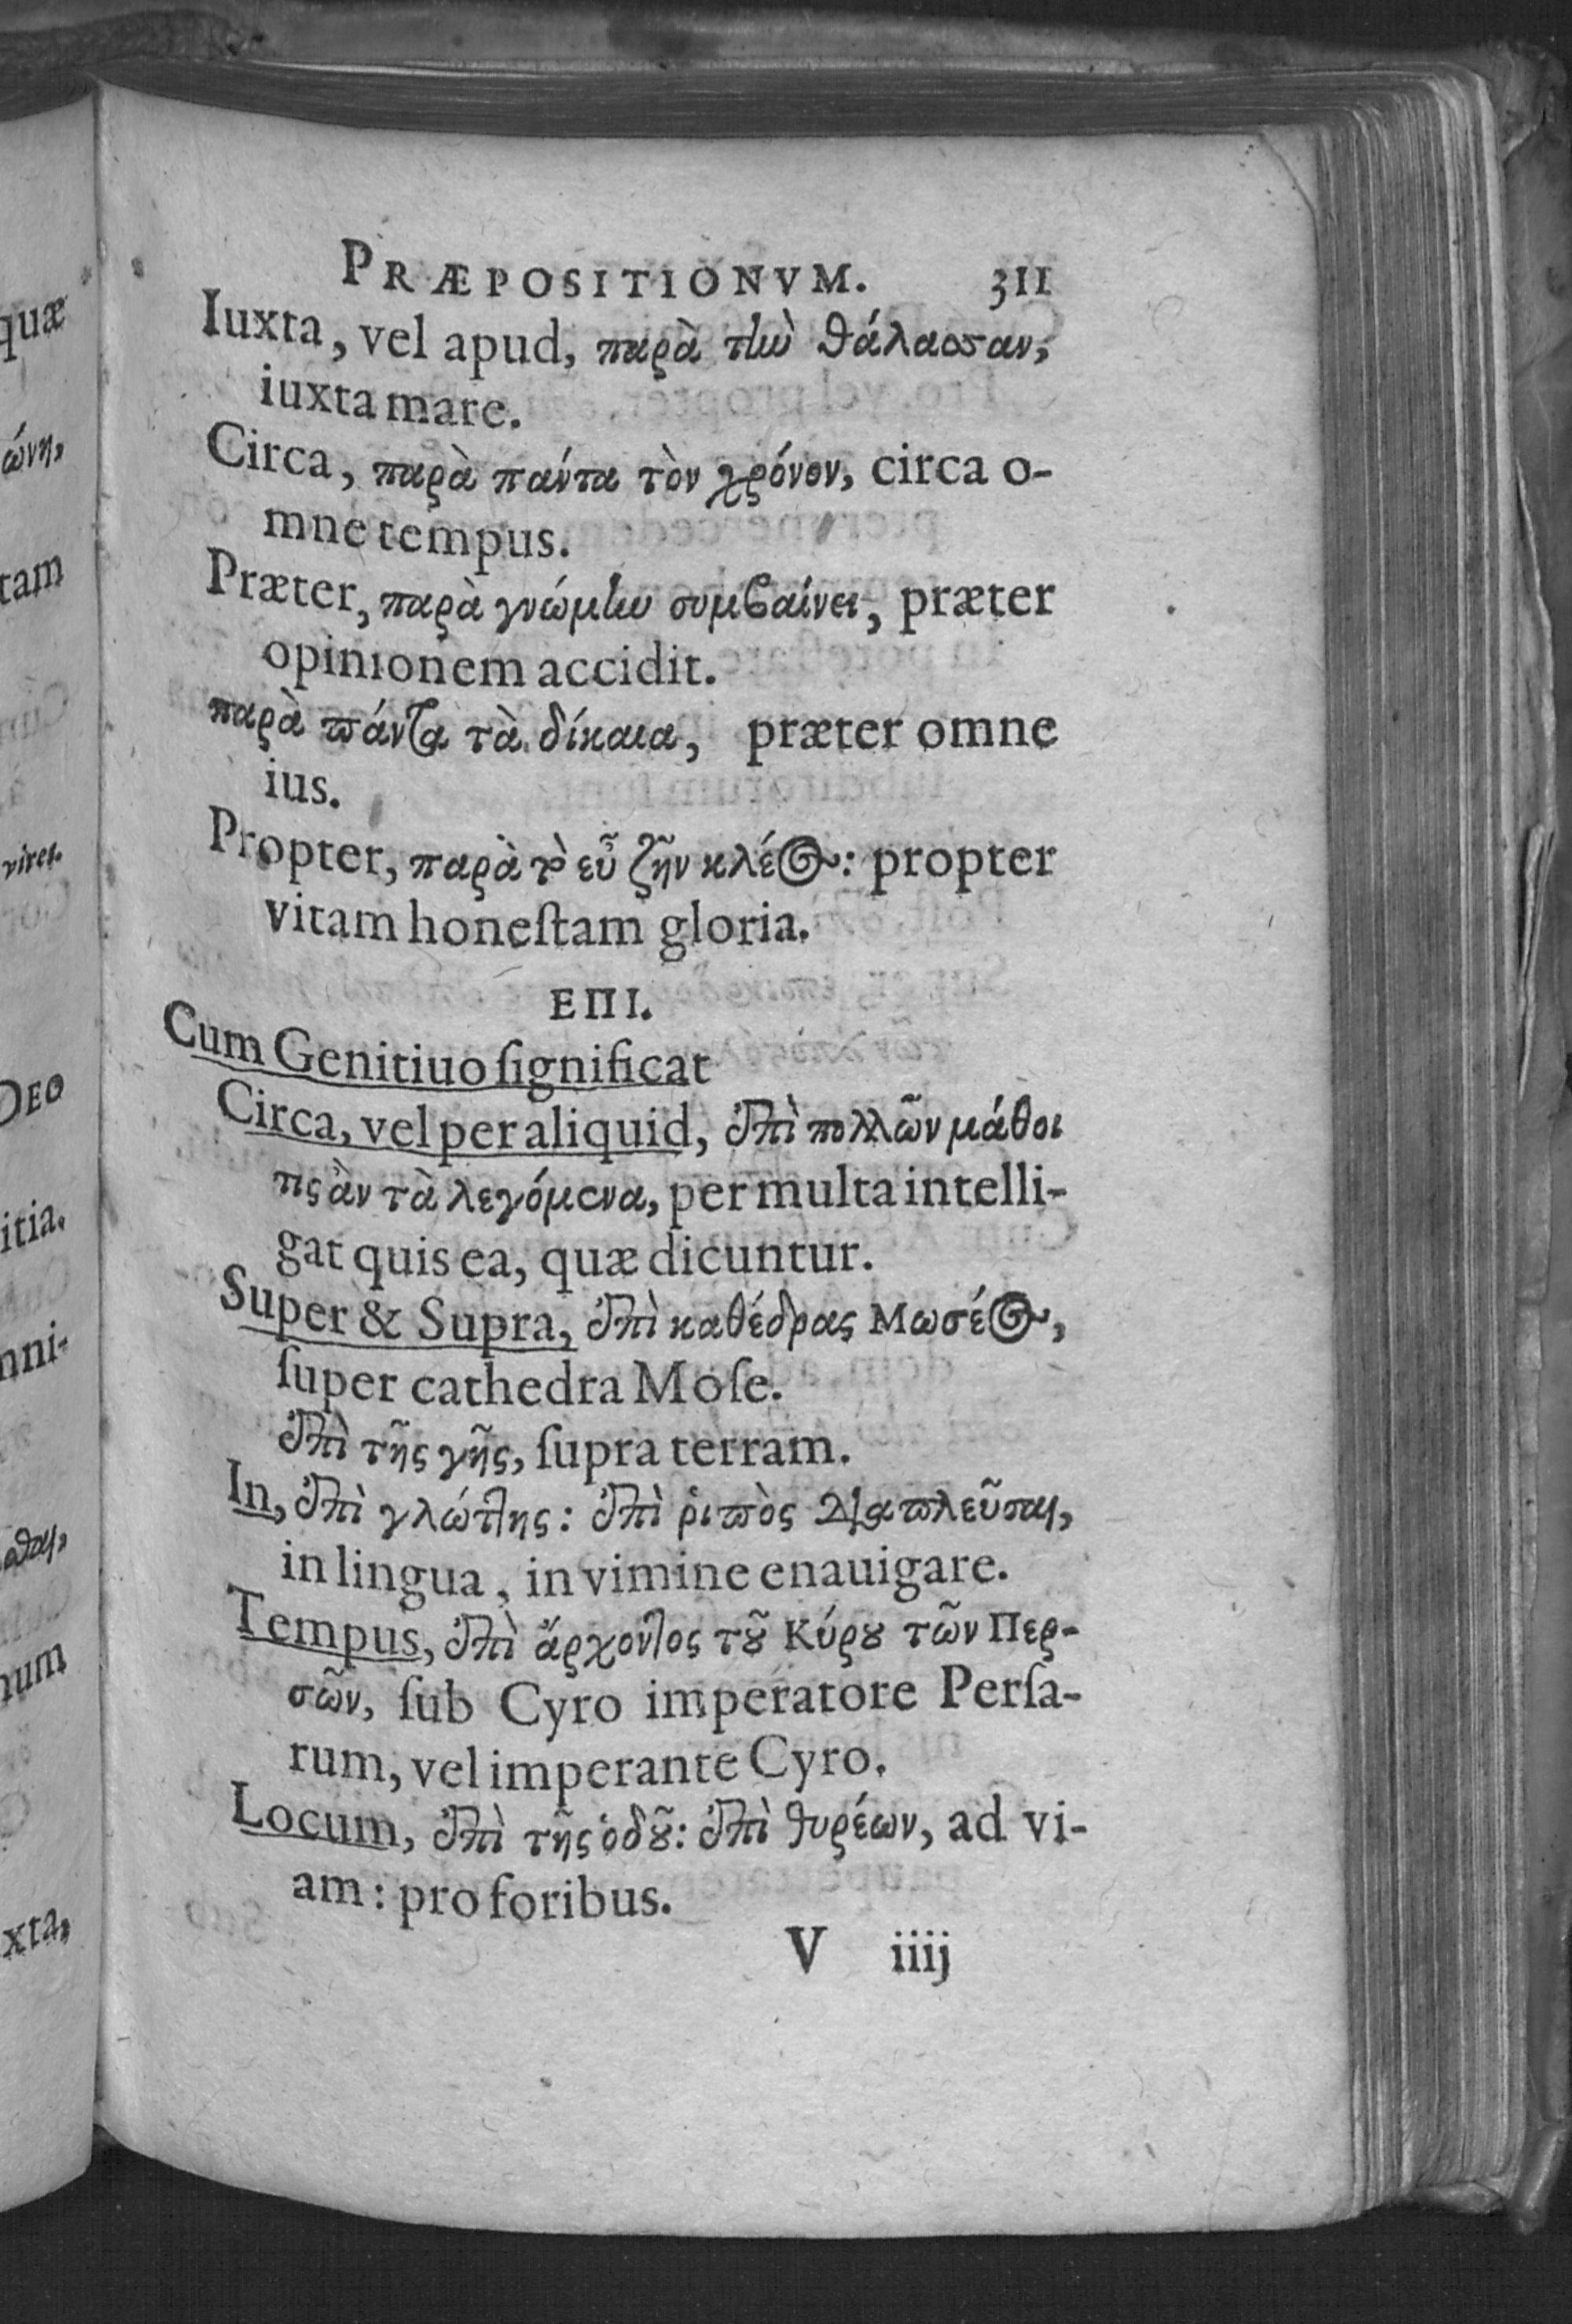 PRÆPOSITIONVM. 311
Iuxta, vel apud, παρὰ τὴν θάλασσαν,
iuxta mare.
Circa, παρὰ πάντα τὸν χρόνον, circa o-
mne tempus.
Præter, παρὰ γνώμην συμβαίνει, præter
opinionem accidit.
παρὰ πάντα τὰ δίκαια, præter omne
ius.
Propter, παρὰ τὸ εὖ ζῆν κλέος: propter
vitam honeſtam gloria.
ΕΠΙ.
Cum Genitiuo ſignificat
Circa, vel per aliquid, ἐπὶ πολλῶν μάθοι
τις ἂν τὰ λεγόμενα, per multa intelli-
gat quis ea, quæ dicuntur.
Super & Supra, ἐπὶ καθέδρας Μωσέος,
ſuper cathedra Moſe.
ἐπὶ τῆς γῆς, ſupra terram.
In, ἐπὶ γλώττης: ἐπὶ ῥιπὸς διαπλεῦσαι,
in lingua, in vimine enauigare.
Tempus, ἐπὶ ἄρχοντος τοῦ Κύρου τῶν Περ-
σῶν, ſub Cyro imperatore Perſa-
rum, vel imperante Cyro.
Locum, ἐπὶ τῆς ὁδοῦ: ἐπὶ θυρέων, ad vi-
am: pro foribus.
V iiij
quæ
ώνη,
tam
DEO
itia.
mni-
num
xta,